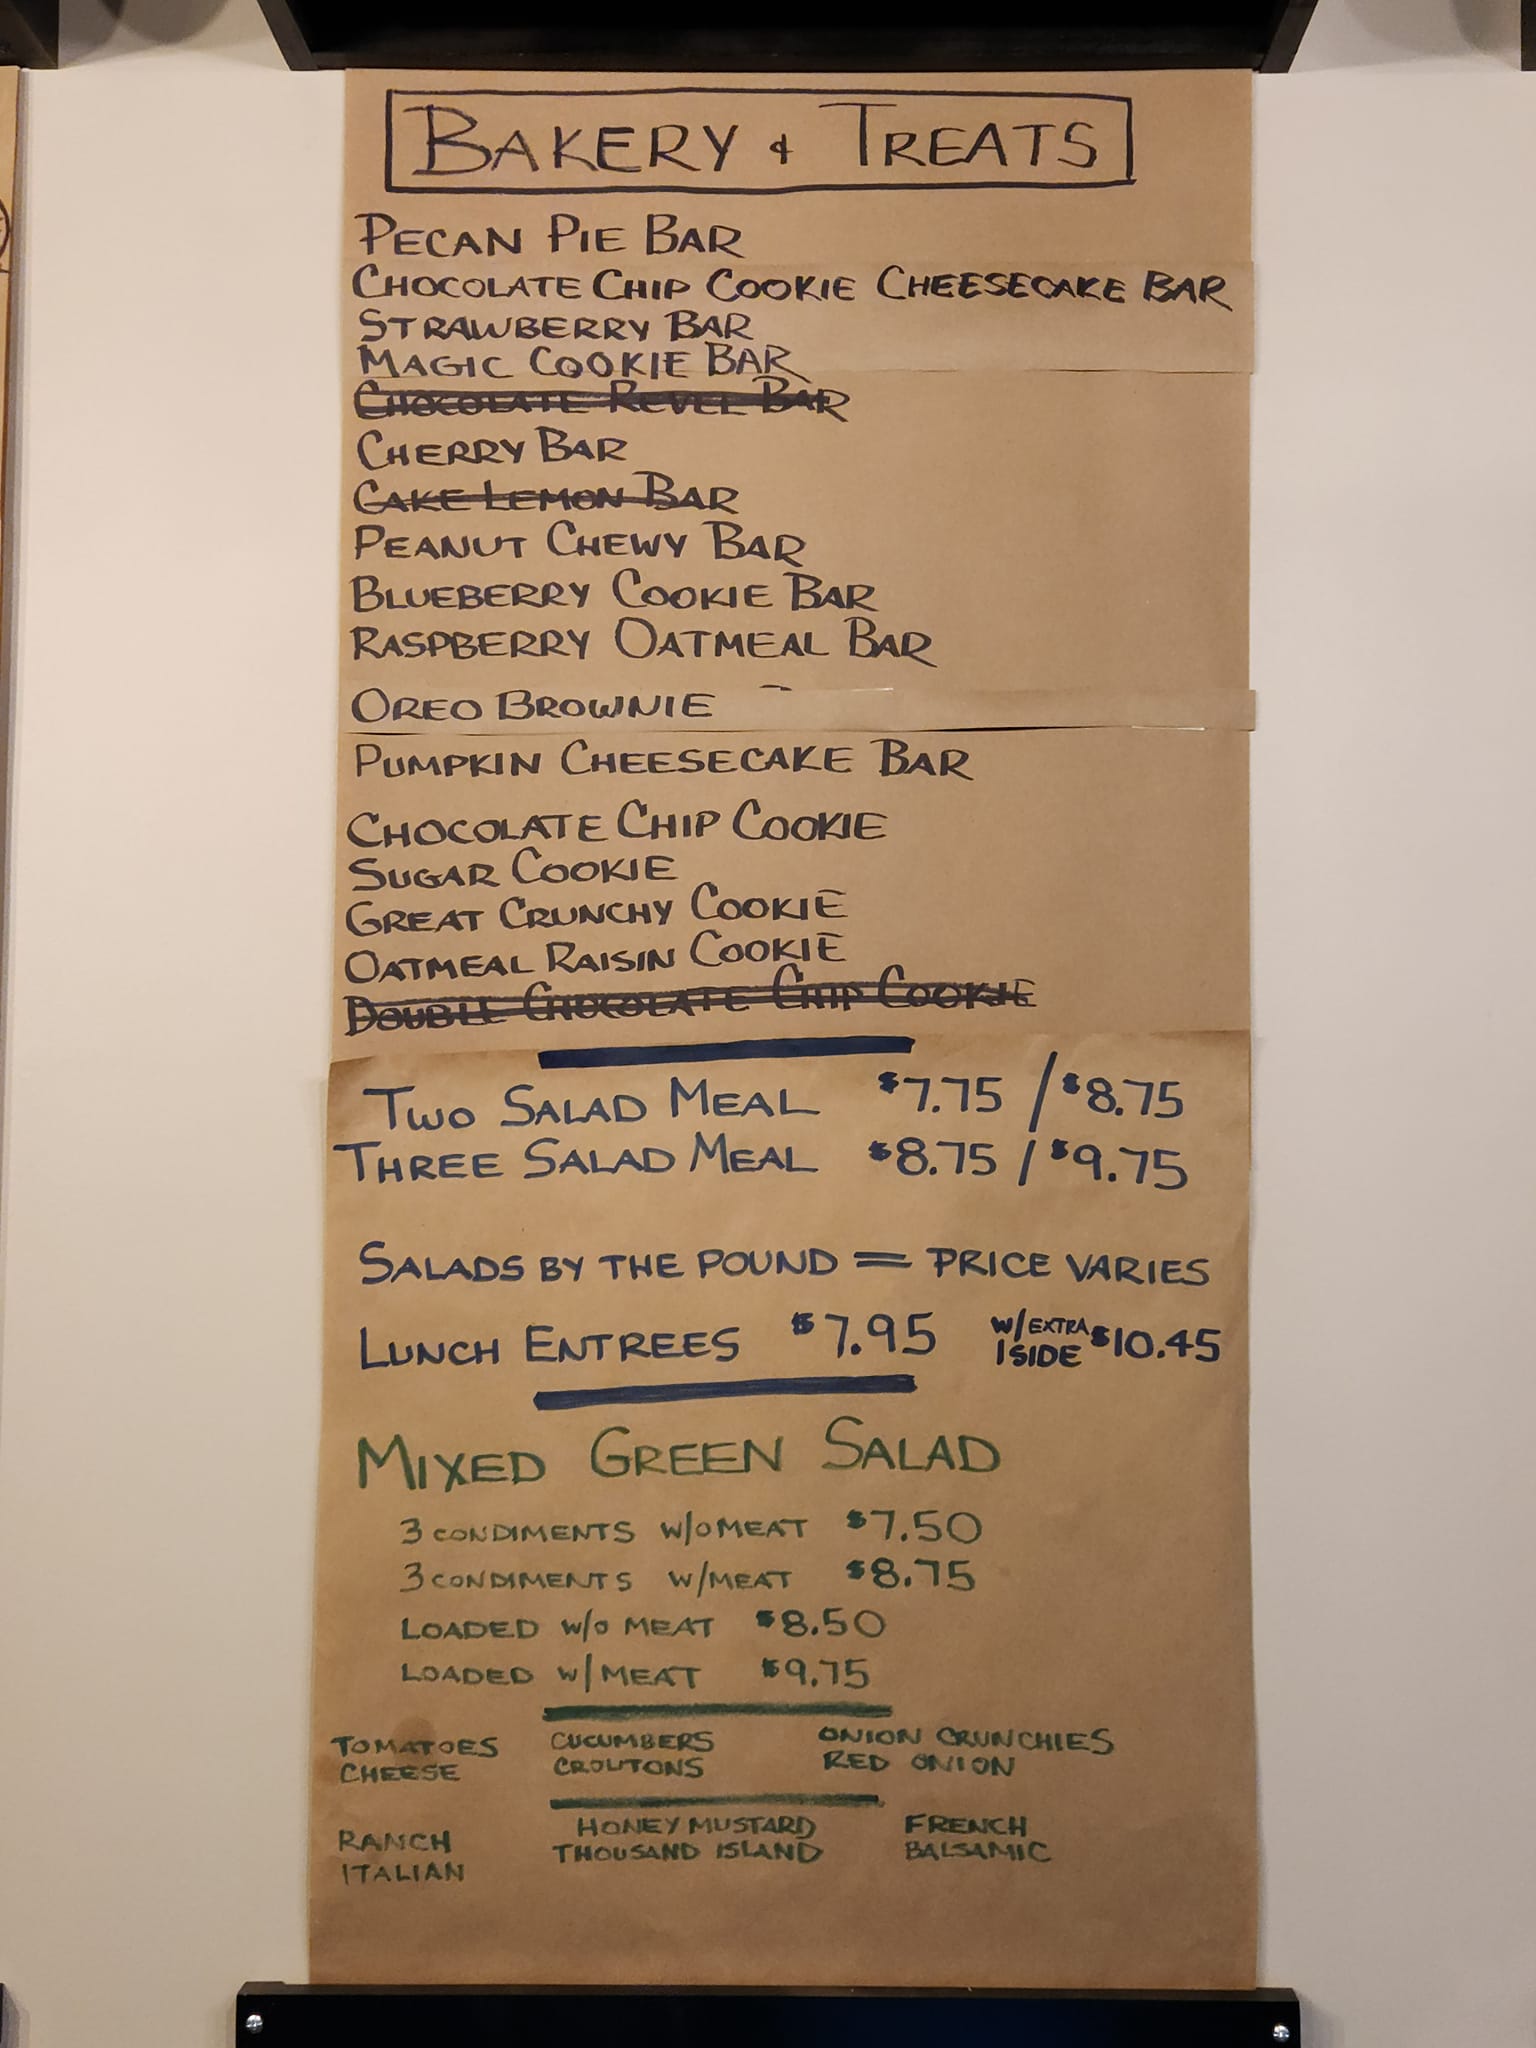 BAKERY & TREATS
PECAN PIE BAR
CHOCOLATE CHIP COOKIE CHEESECAKE BAR
STRAWBERRY BAR
MAGIC COOKIE BAR
CHOCOLATE REVEL BAR
CHERRY BAR
CAKE LEMON BAR
PEANUT CHEWY BAR
BLUEBERRY COOKIE BAR
RASPBERRY OATMEAL BAR
OREO BROWNIE
PUMPKIN CHEESECAKE BAR
CHOCOLATE CHIP COOKIE
SUGAR COOKIE
GREAT CRUNCHY COOKIE
OATMEAL RAISIN COOKIE
DOUBLE CHOCOLATE CHIP COOKIE
TWO SALAD MEAL $7.75 / $8.75
THREE SALAD MEAL $8.75 / $9.75
SALADS BY THE POUND = PRICE VARIES
LUNCH ENTREES $7.95 W/EXTRA 1 SIDE $10.45
MIXED GREEN SALAD
3 CONDIMENTS W/O MEAT $7.50
3 CONDIMENTS W/MEAT $8.75
LOADED W/O MEAT $8.50
LOADED W/MEAT $9.75
TOMATOES CUCUMBERS ONION CRUNCHIES
CHEESE CROUTONS RED ONION
RANCH HONEY MUSTARD FRENCH
ITALIAN THOUSAND ISLAND BALSAMIC